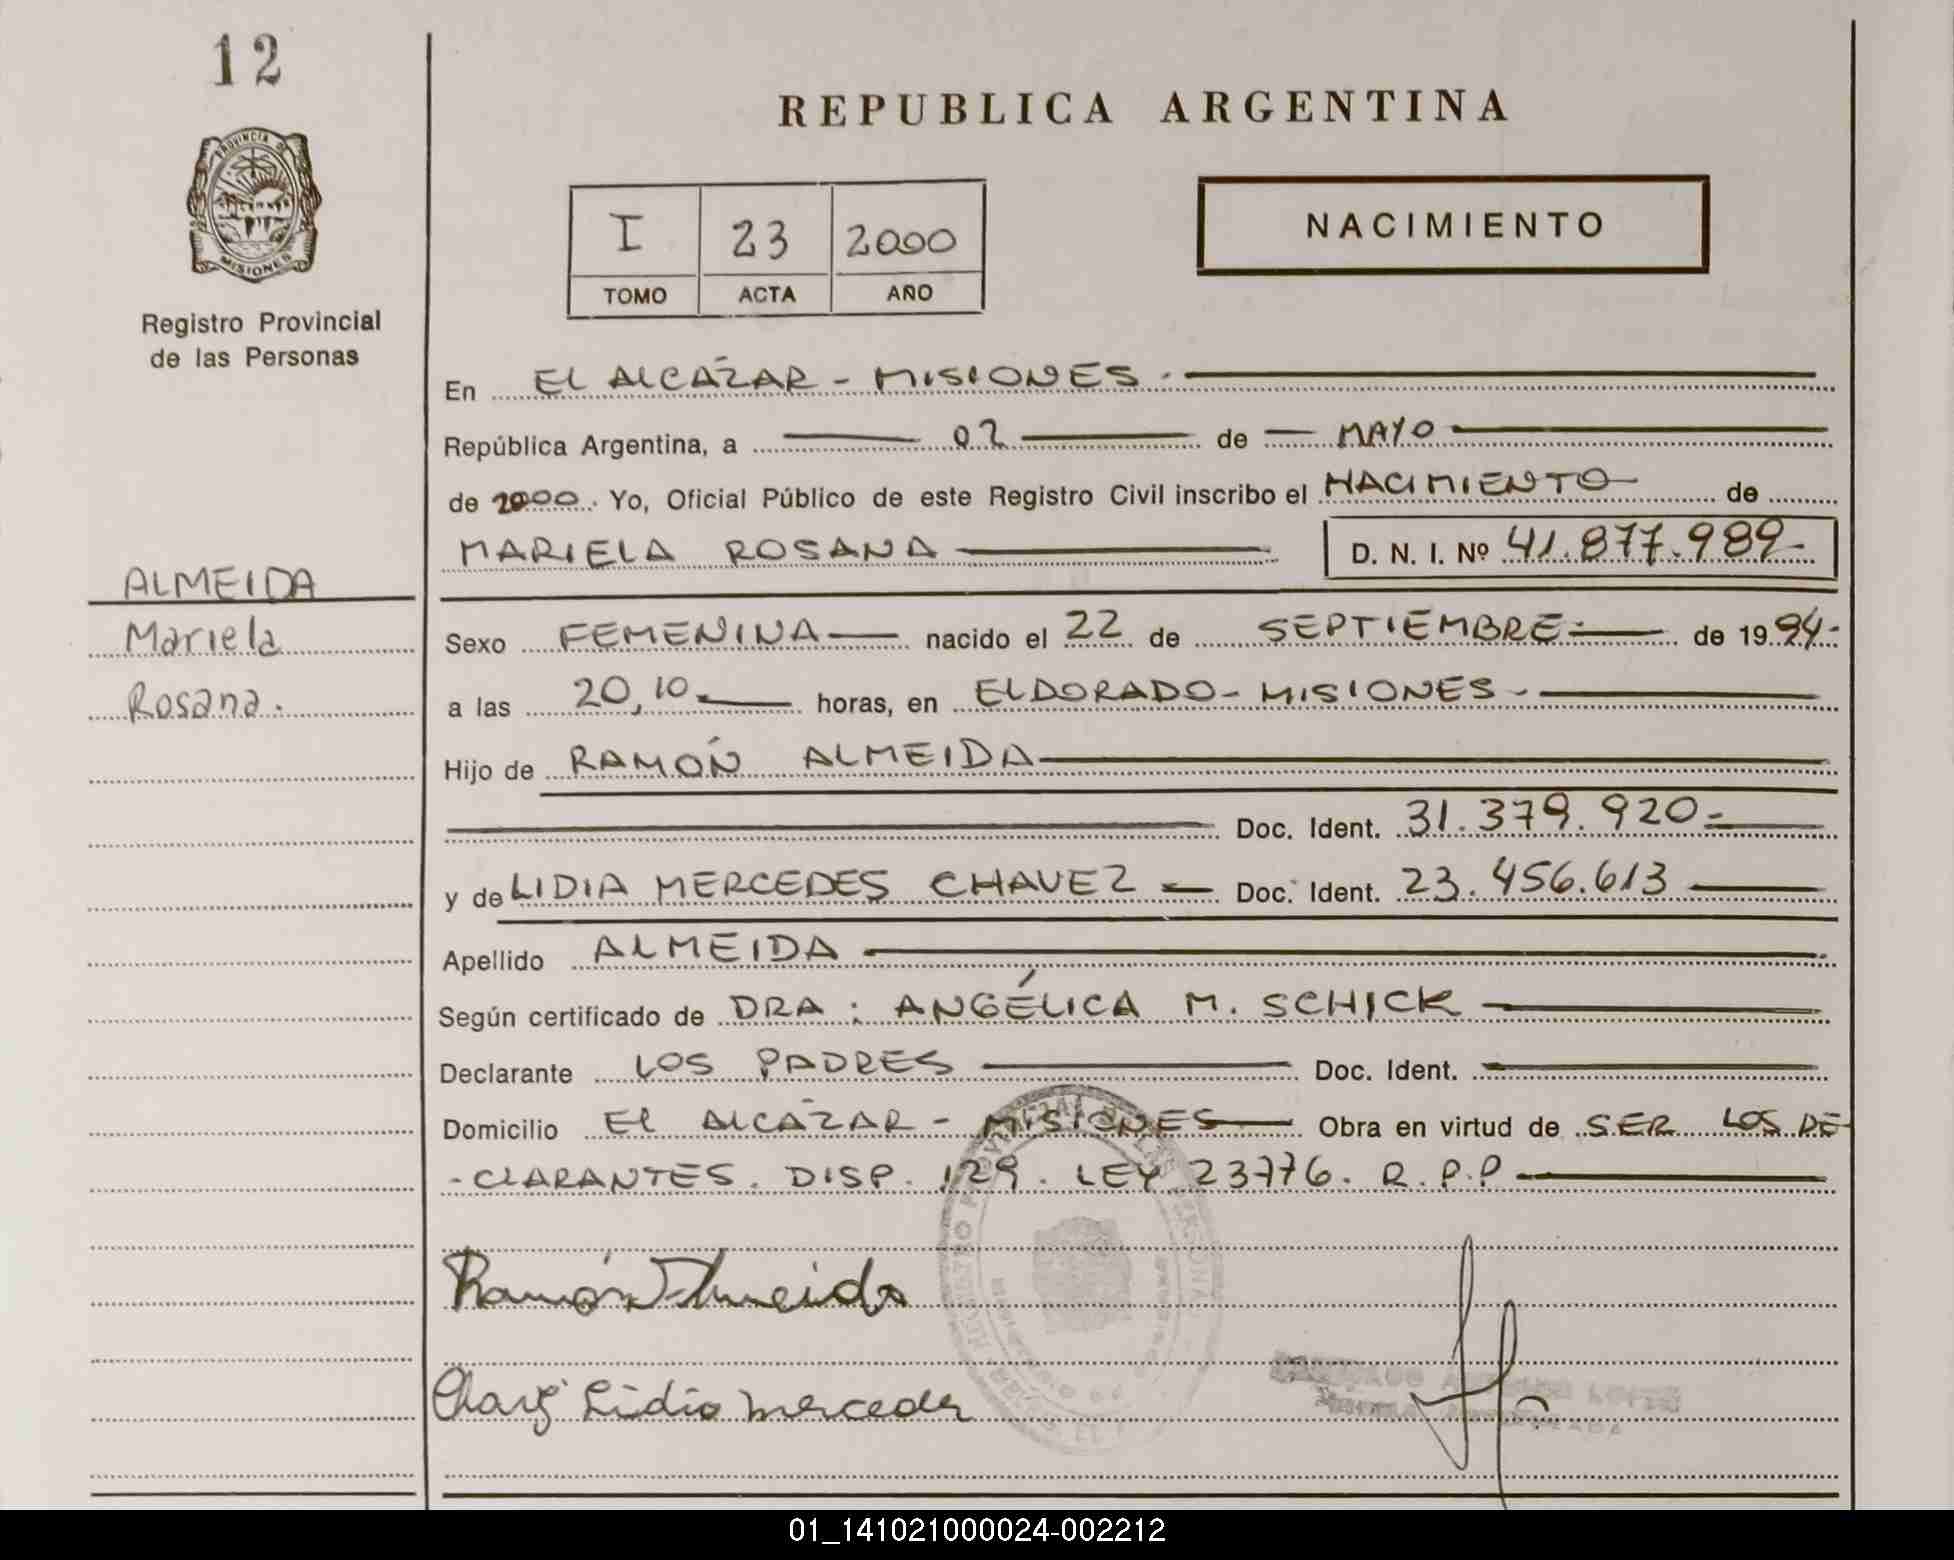 12
PROVINCIA DE
MISIONES
Registro Provincial
de las Personas
REPUBLICA ARGENTINA
I 23 2000
TOMO ACTA AÑO
NACIMIENTO
En EL ALCÁZAR - MISIONES.
República Argentina, a 02 de MAYO
de 2000. Yo, Oficial Público de este Registro Civil inscribo el NACIMIENTO de
MARIELA ROSANA D. N. I. Nº 41.877.989-
ALMEIDA
Mariela
Rosana.
Sexo FEMENINA nacido el 22 de SEPTIEMBRE de 1994-
a las 20,10 horas, en ELDORADO - MISIONES -
Hijo de RAMÓN ALMEIDA
Doc. Ident. 31.379.920-
y de LIDIA MERCEDES CHAVEZ Doc. Ident. 23.456.613
Apellido ALMEIDA
Según certificado de DRA: ANGÉLICA M. SCHICK
Declarante LOS PADRES Doc. Ident.
Domicilio EL ALCÁZAR - MISIONES Obra en virtud de SER LOS DE-
-CLARANTES. DISP. 129. LEY 23776. R.P.P
Ramón Almeida
Lidia Mercedes
01_141021000024-002212